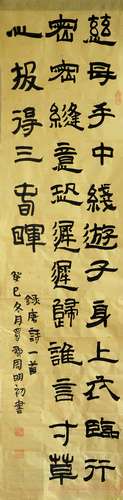 慈母手中綫游子身上衣臨行
密密縫意恐遲遲歸誰言寸草
心报得三春暉
錄唐詩一首
癸巳冬月周明初書